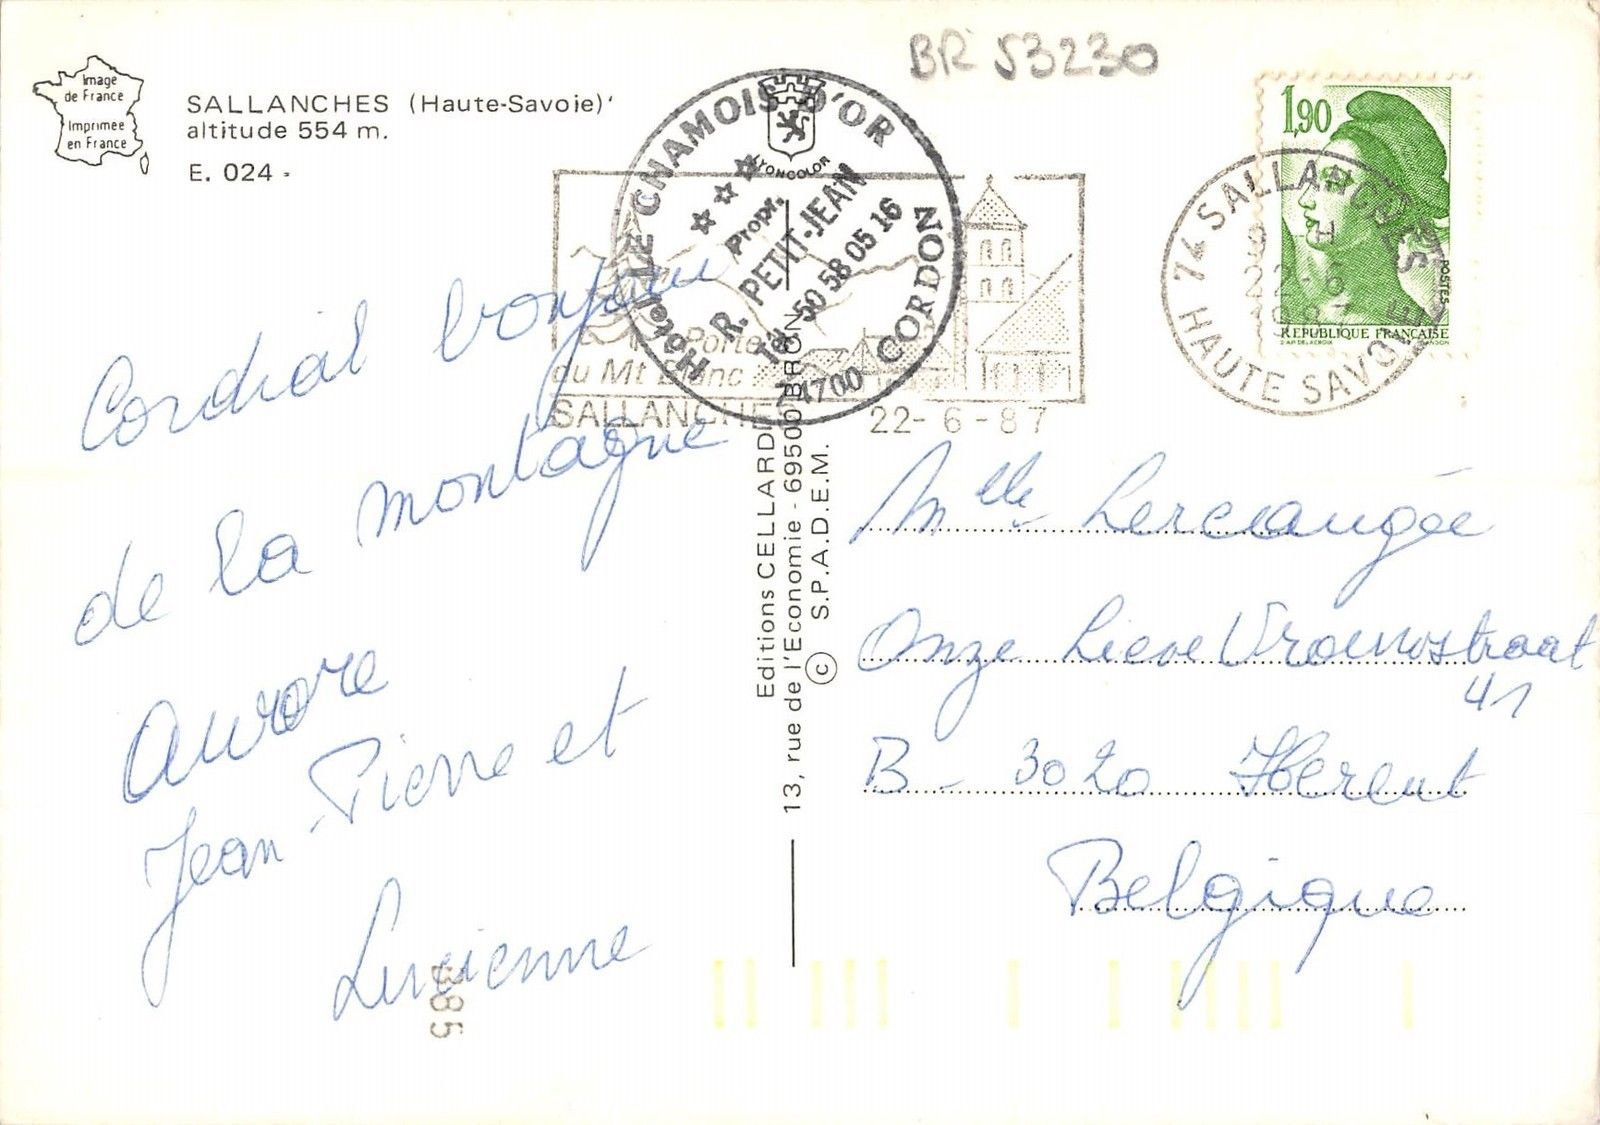 BR 53230
Image
de France
Imprimée
en France
SALLANCHES (Haute-Savoie)
altitude 554 m.
E. 024
LYONCOLOR
Hôtel LE CHAMOIS D'OR
Propr.
R. PETIT-JEAN
Tél 50 58 05 16
74700 CORDON
Porte
du Mt Blanc
SALLANCHES 22-6-87
1,90
POSTES
REPUBLIQUE FRANÇAISE
74 SALLANCHES
22-6
1987
HAUTE SAVOIE
Cordial bonjour
de la montagne
Aurore
Jean-Pierre et
Lucienne
385
Editions CELLARD
13, rue de l'Economie - 69500 BRON
© S.P.A.D.E.M.
Mlle
Onze Lieve Vrouwstraat
41
B - 3020 Herent
Belgique